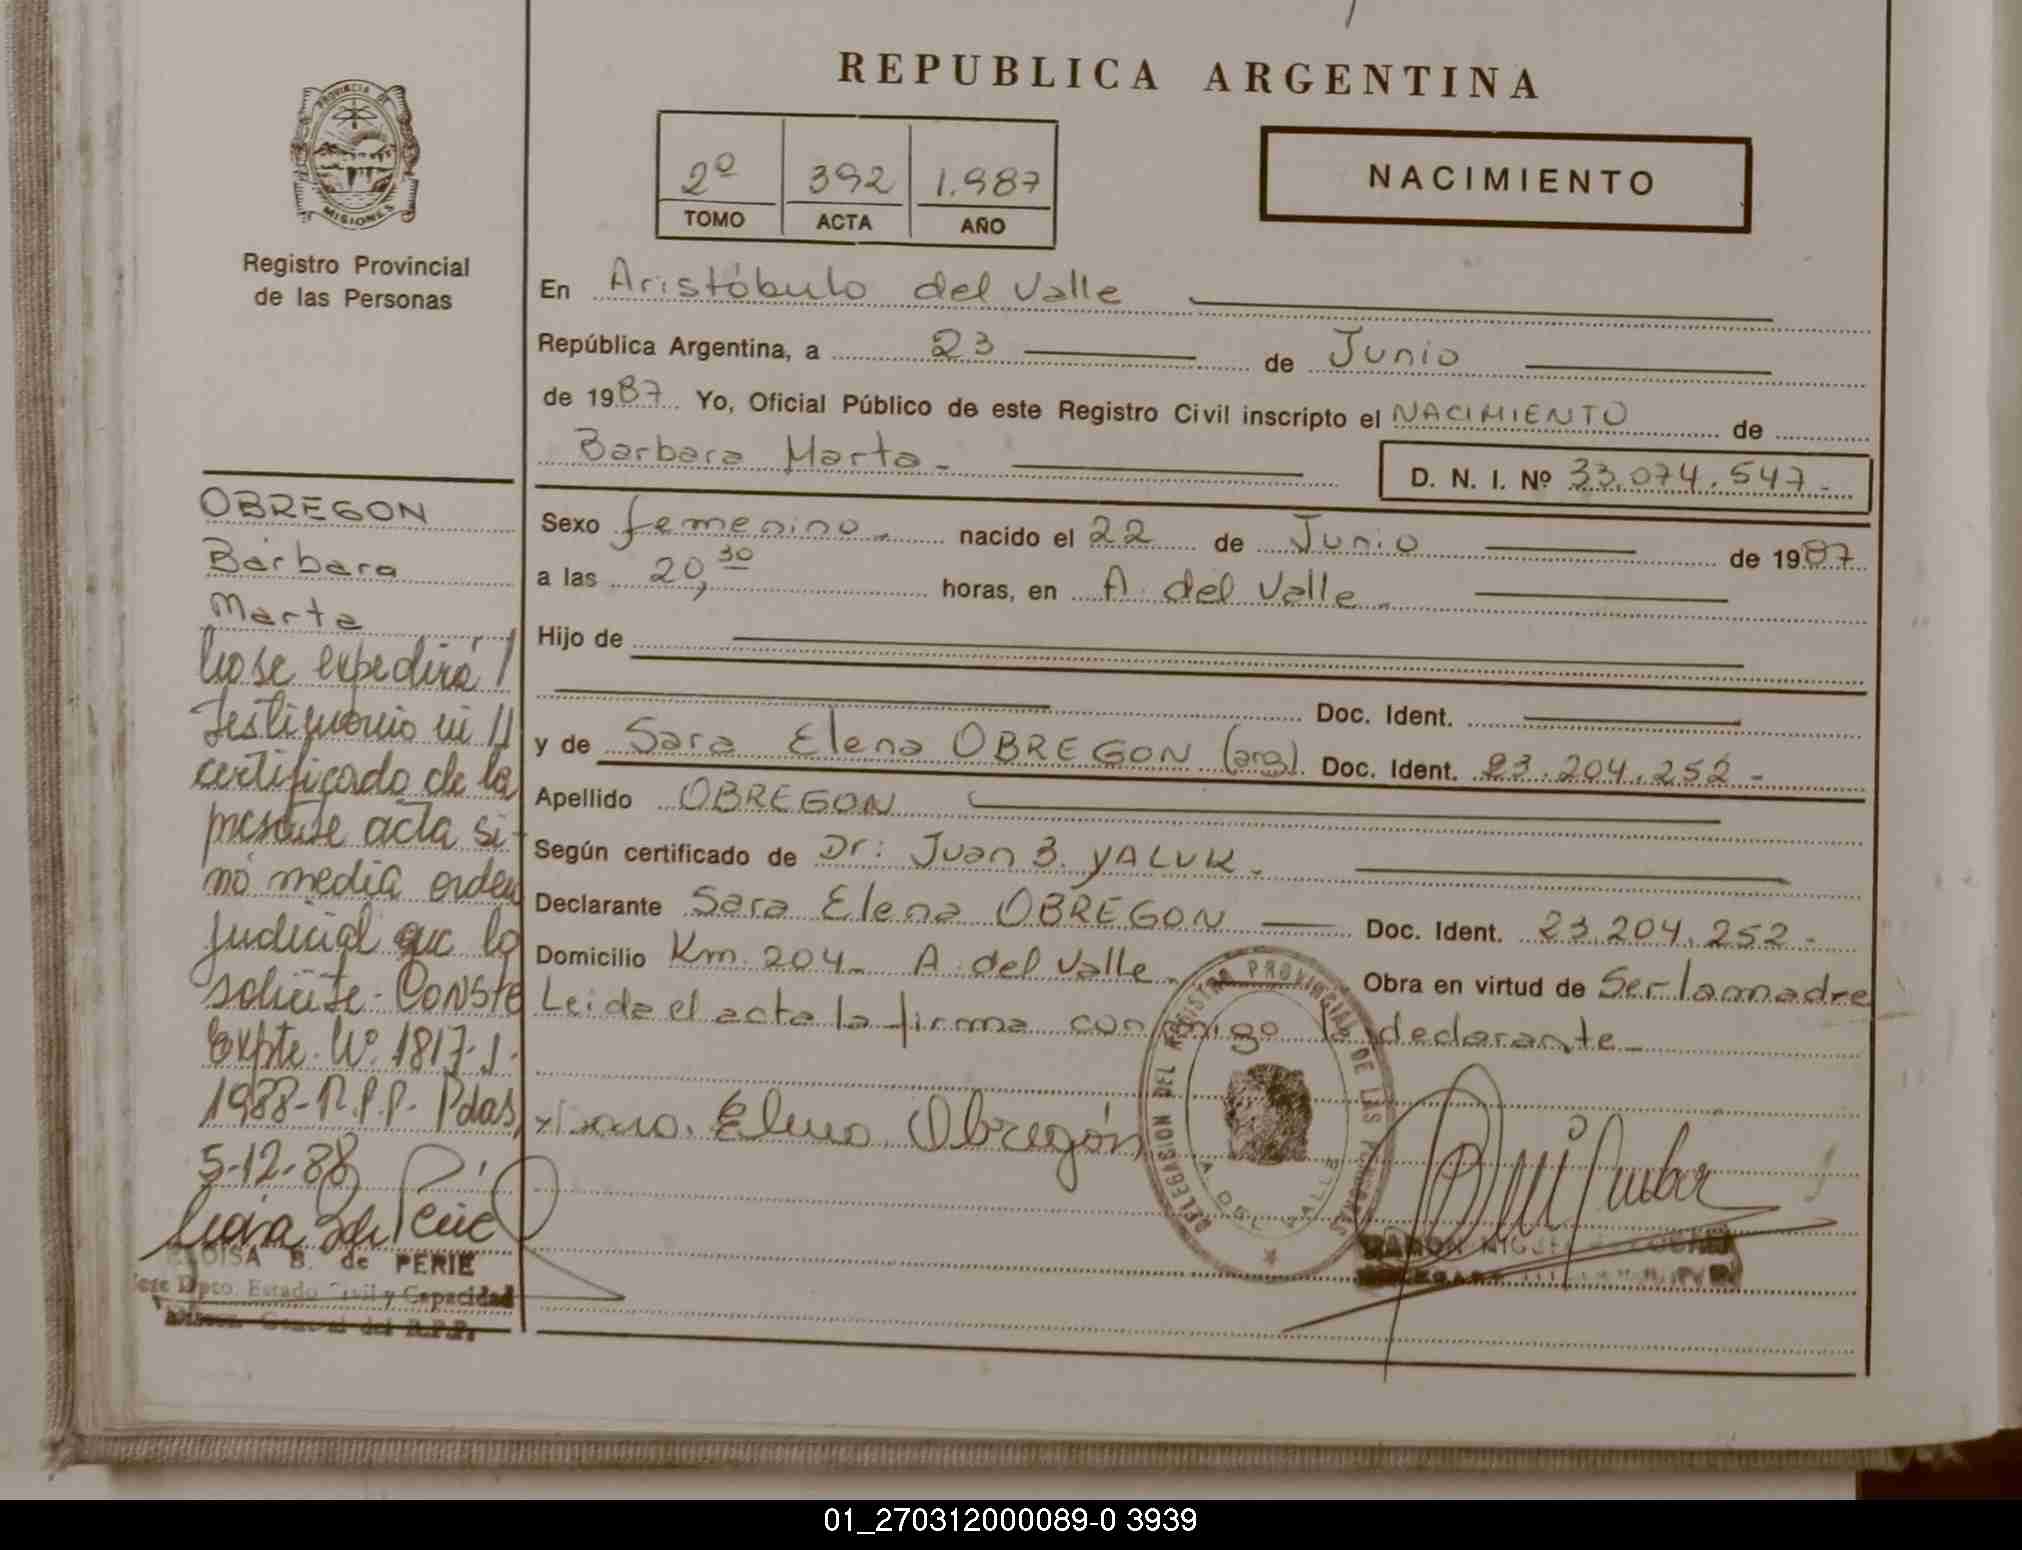 REPUBLICA ARGENTINA
PROVINCIA DE
MISIONES
Registro Provincial
de las Personas
2º 392 1.987
TOMO ACTA AÑO
NACIMIENTO
En Aristóbulo del Valle
República Argentina, a 23 de Junio
de 1987 Yo, Oficial Público de este Registro Civil inscripto el NACIMIENTO de
Barbara Marta - D. N. I. Nº 33.074.547.-
Sexo femenino.- nacido el 22 de Junio de 1987
a las 20,30 horas, en A. del Valle.-
Hijo de
Doc. Ident.
y de Sara Elena OBREGON (arg). Doc. Ident. 23.204.252.-
Apellido OBREGON
Según certificado de Dr: Juan B. YALUK.-
Declarante Sara Elena OBREGON Doc. Ident. 23.204.252.-
Domicilio Km. 204.- A. del Valle.- Obra en virtud de Ser la madre
Leida el acta la firma conmigo la declarante.-
Sara Elena Obregón
DELEGACION DEL REGISTRO PROVINCIAL DE LAS PERSONAS
A. DEL VALLE
RAMON MIGUEL
OBREGON
Bárbara
Marta
No se expedirá /
Testimonio ni //
certificado de la
presente acta si
no media orden
judicial que lo
solicite - CONSTE
Expte. Nº 1817-J-
1988-R.P.P. Pdas,
5-12-88
ELOISA B. de PERIE
Jefe Dpto. Estado Civil y Capacidad
General del R.P.P.
01_270312000089-0 3939